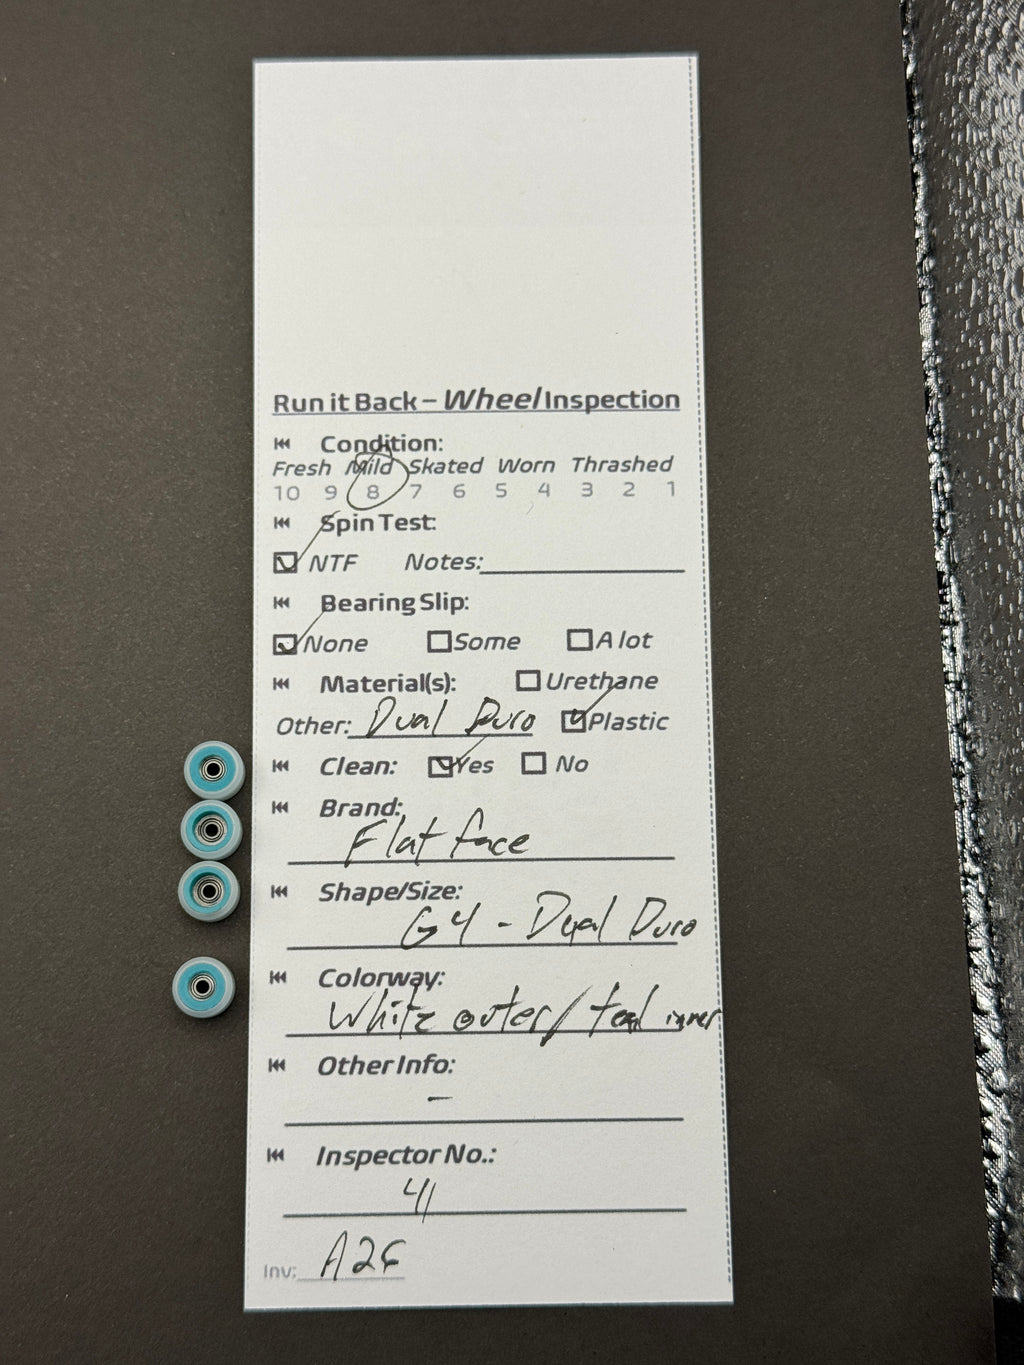 Run it Back – Wheel Inspection
Condition:
Fresh Mild Skated Worn Thrashed
10 9 8 7 6 5 4 3 2 1
Spin Test:
NTF Notes:
Bearing Slip:
None Some A lot
Material(s): Urethane
Other: Dual Duro Plastic
Clean: Yes No
Brand:
Flat face
Shape/Size:
G4 - Dual Duro
Colorway:
White outer/teal inner
Other Info:
-
Inspector No.:
41
Inv: